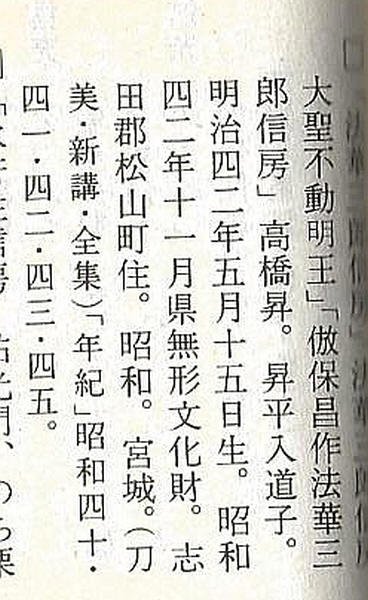 大聖不動明王」「倣保昌作法華三
郎信房」高橋昇。昇平入道子。
明治四二年五月十五日生。昭和
四二年十一月県無形文化財。志
田郡松山町住。昭和。宮城。（刀
美・新講・全集）「年紀」昭和四十・
四一・四二・四三・四五。